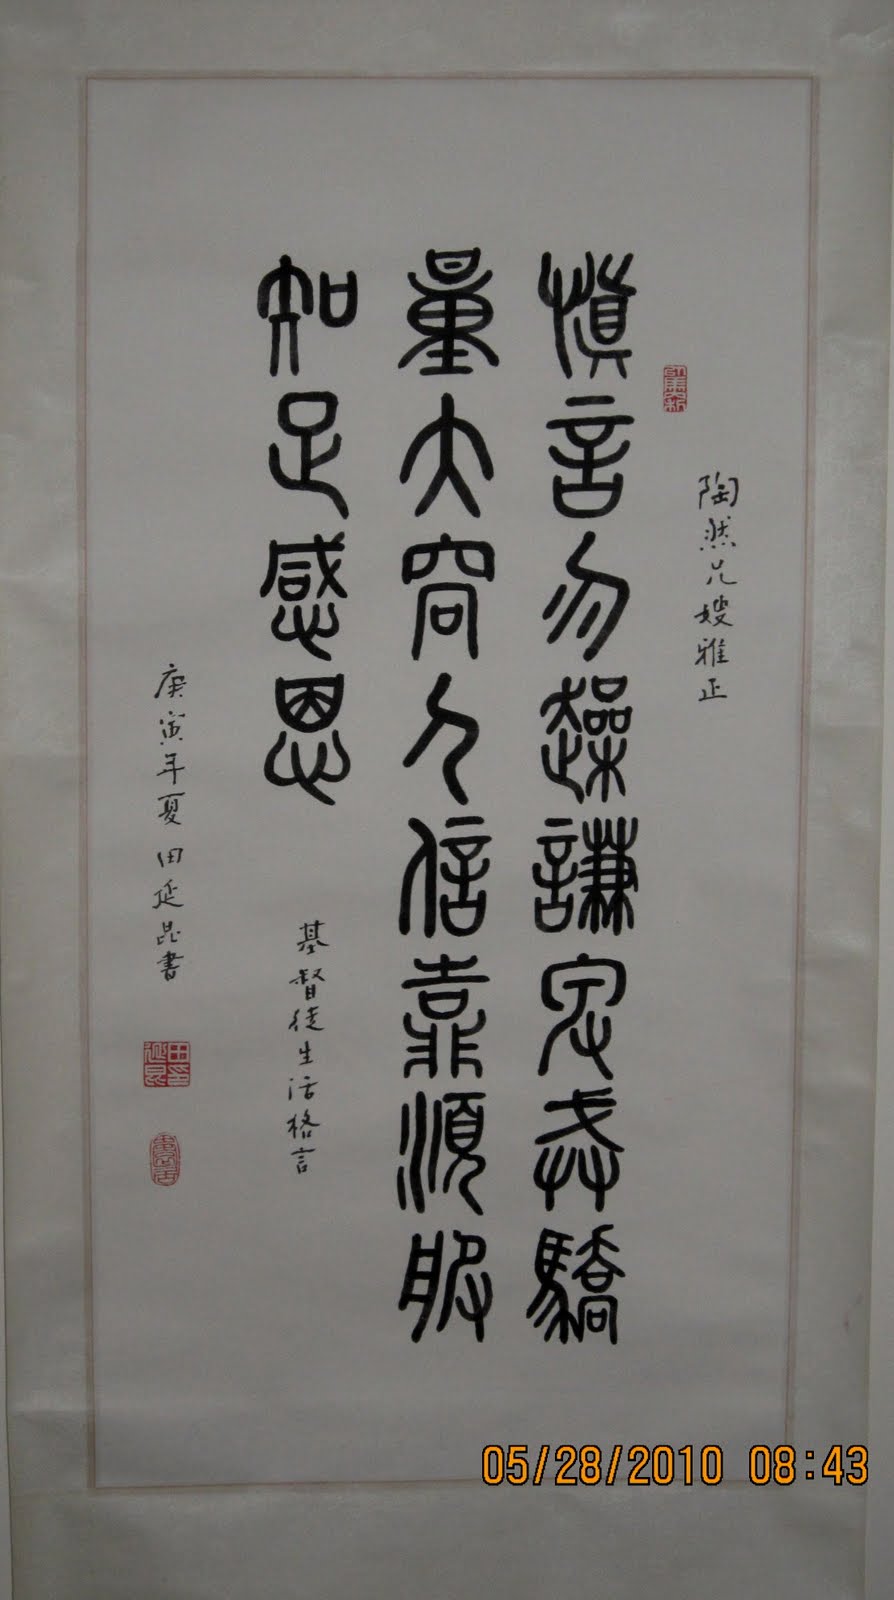 陶然兄嫂雅正
慎言勿躁謙戒驕
量大容人信靠順服
知足感恩
基督徒生活格言
庚寅年夏 田延昆書
田延昆印
05/28/2010 08:43